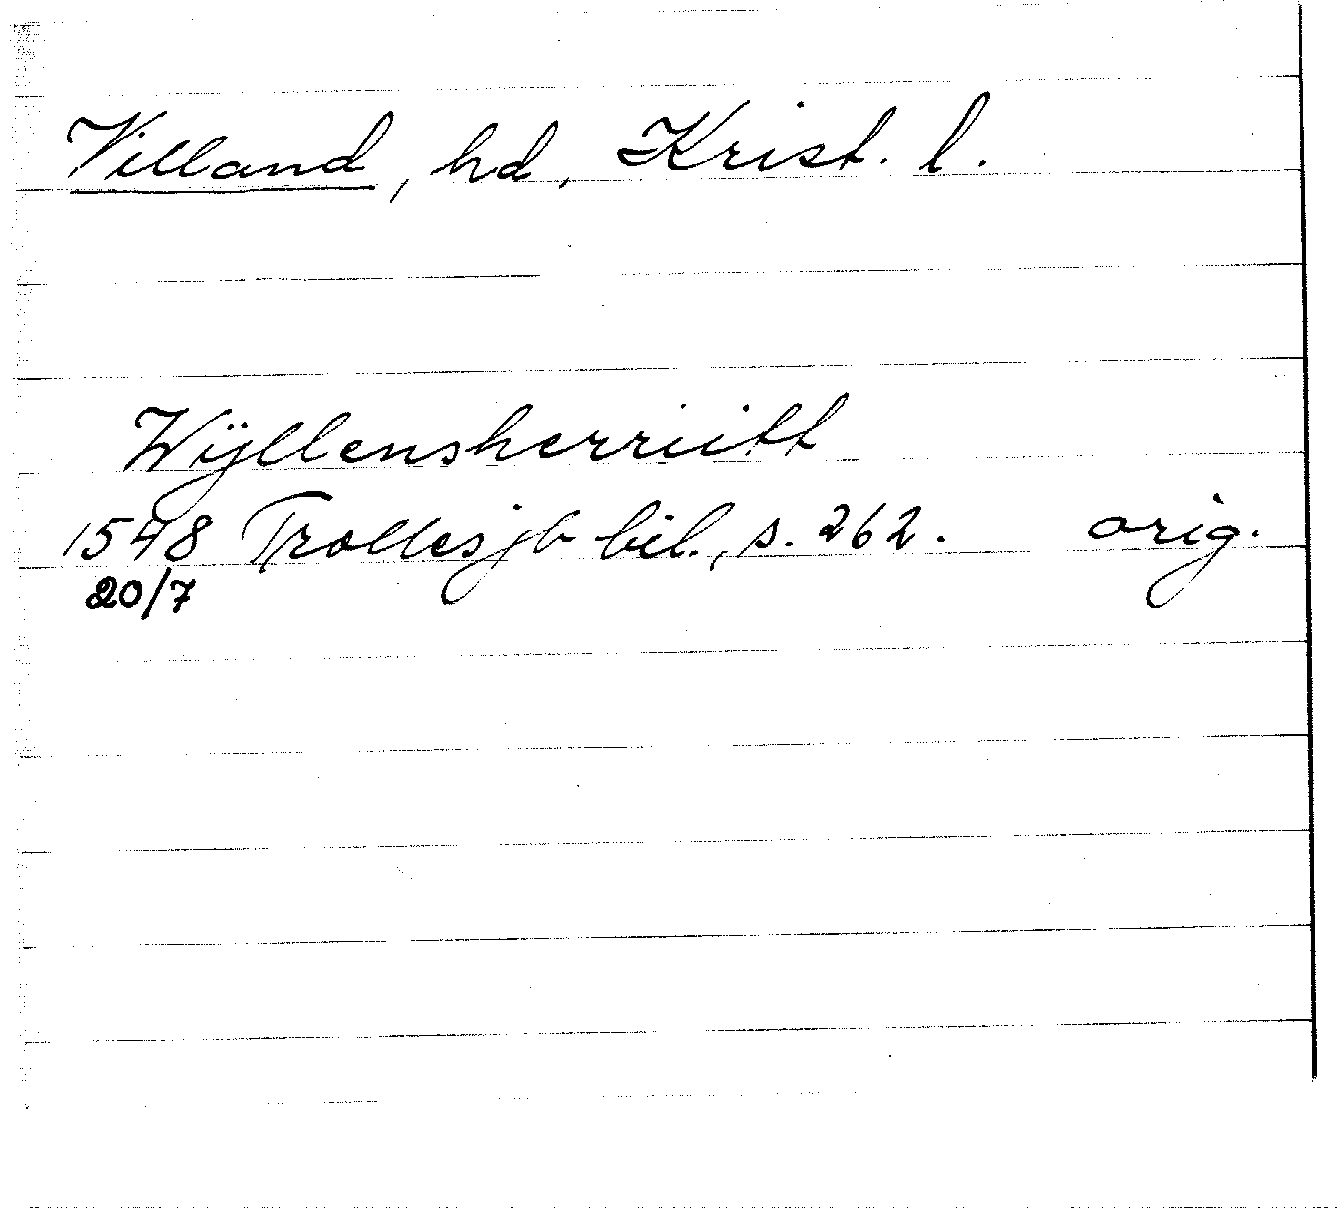 Villand, hd, Krist. l.
Wÿllensherriitt
1548 Trolles jb bil., s. 262. orig.
20/7